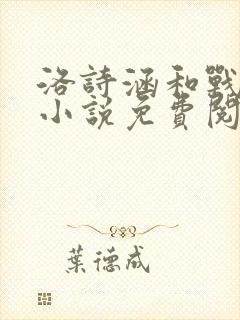 洛詩涵和戰
小說免費閱
葉德成